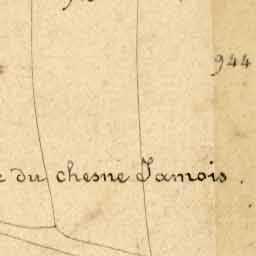 944
e du chesne Jamois.